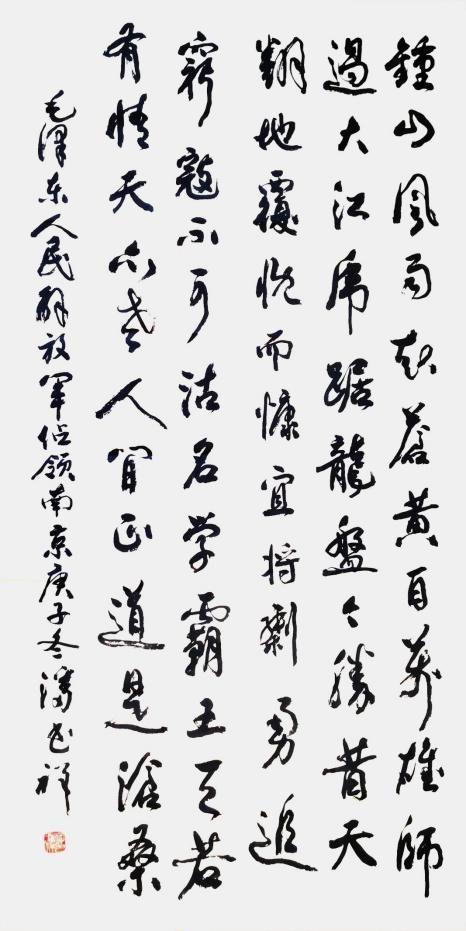 鍾山風雨起蒼黃百萬雄師
過大江虎踞龍盤今勝昔天
翻地覆慨而慷宜將剩勇追
窮寇不可沽名學霸王天若
有情天亦老人間正道是滄桑
毛澤东人民解放軍佔領南京庚子冬潘祥